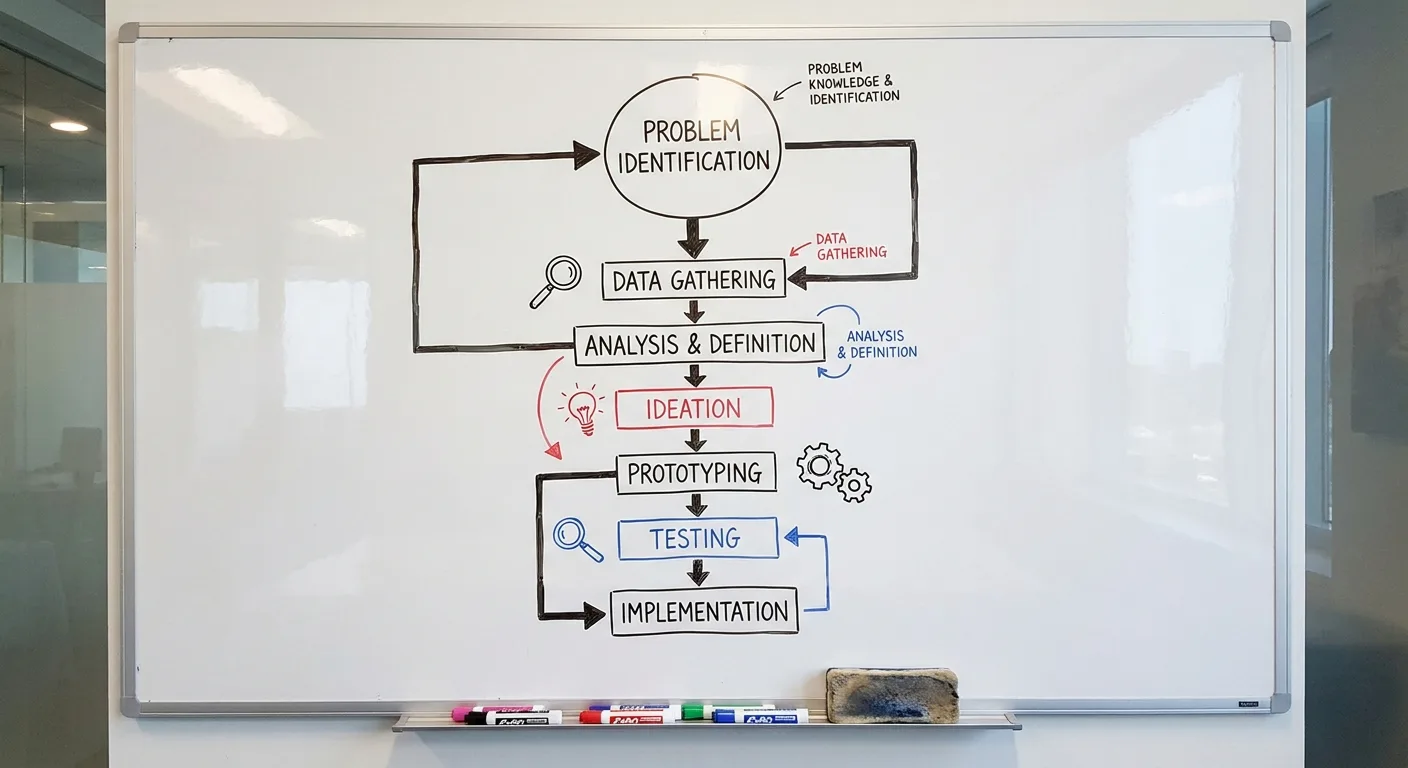 PROBLEM
KNOWLEDGE &
IDENTIFICATION
PROBLEM
IDENTIFICATION
DATA
GATHERING
DATA GATHERING
ANALYSIS & DEFINITION
ANALYSIS
& DEFINITION
IDEATION
PROTOTYPING
TESTING
IMPLEMENTATION